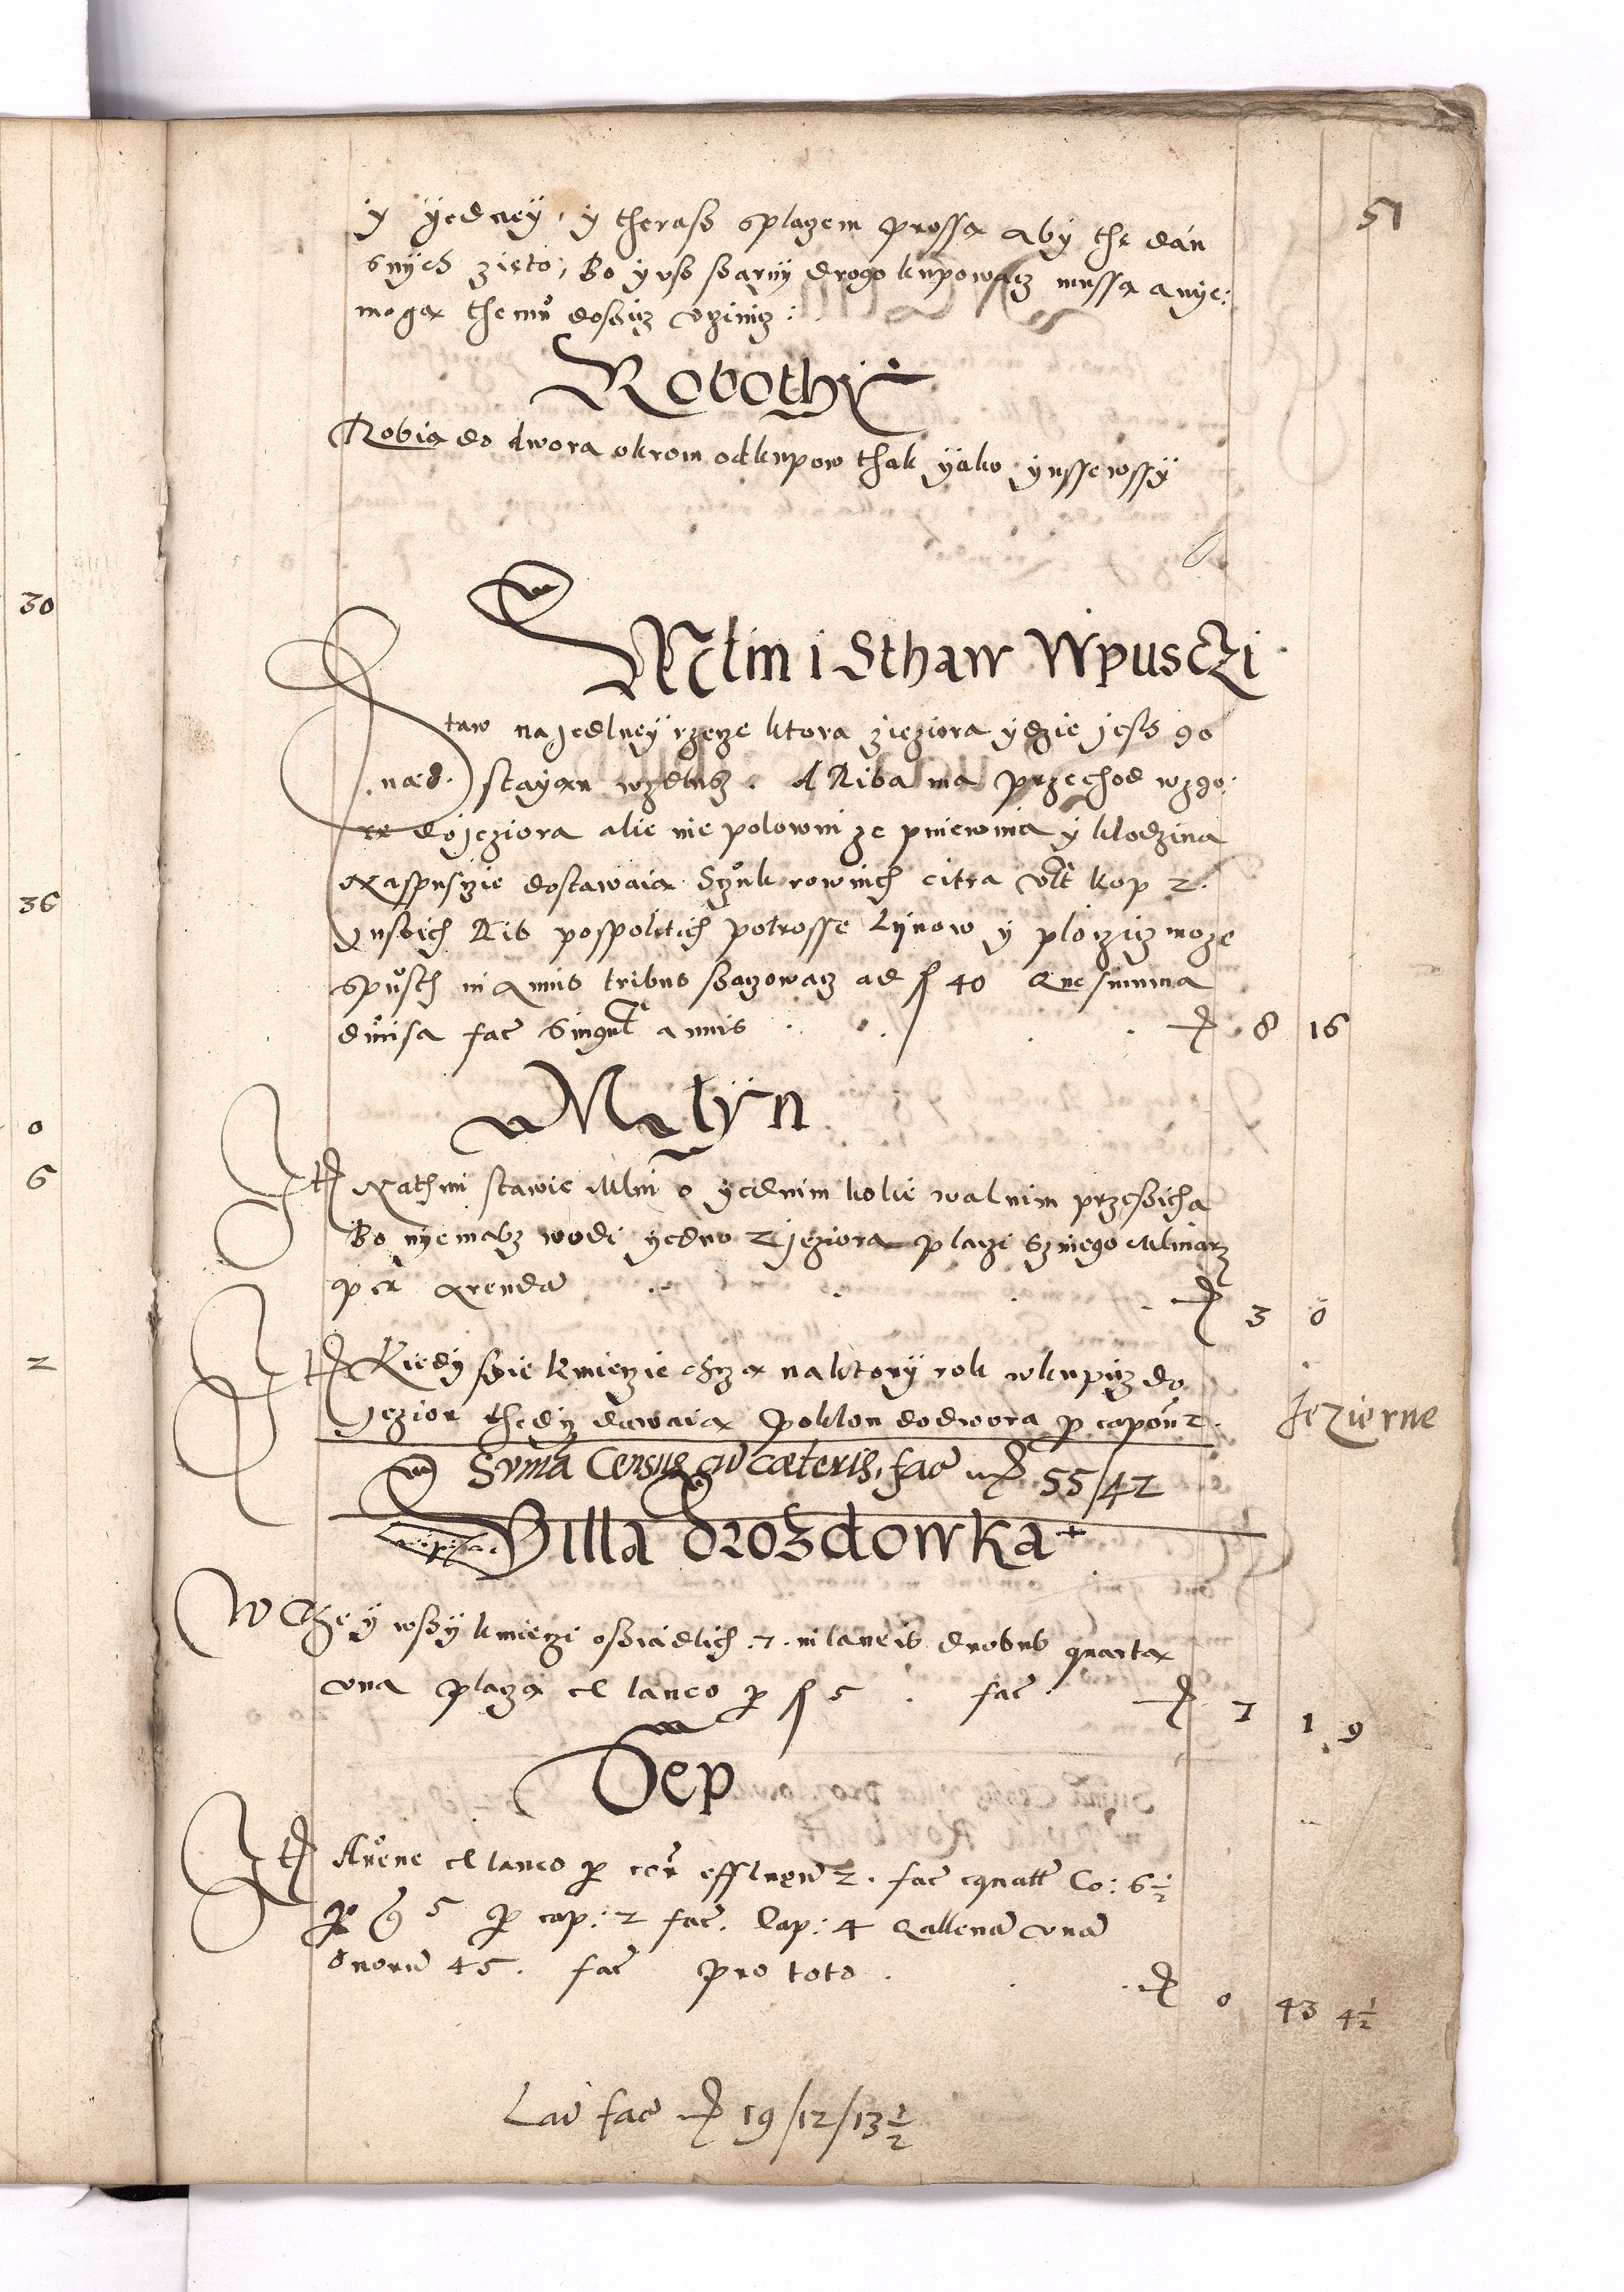 51
y yedney, y therass splaczem prossza aby the dan
snych zięto, Bo y vss ssarny drogo kupowacz mussza a nye:
moga themu dossicz vczinicz:
Robothy
Robia do dwora okrom odkupow thak yako ynsse wssy
Mlin i Sthaw Wpusczi
Staw na jedlney rzecze ktora zieziora ydzie jest go
nad. stayan wzdlusz. A Riba ma przechod wzgo:
re do jeziora alie nie polowni ze pniewina y klodzina
Naspusczie dostawaia Sczuk rownich citra vlt kop 2.
Inssich Rib pospolitich potrosse Lynow y ploczicz moze
spusth in Annis tribus ssaczowacz ad ƒ 40 Que summa
diuisa fac singul annis 8 16
Mlyn
It Nathim stawie Mlin o yednim kolie walnim przessicha
Bo nye masz wodi yedno z jeziora placzi sczniego Mlinarz
per Arenda 3 0
It Kiedy ssie kmiezie chcza naktory rok wkupicz do
Jezior thedy dawaia poklon dodwora p capon 2.
Jezierne
Suma Census cu cæteris, fac 55/42
Villa Drozdowka
W they wssy kmieczi ossiadlich .7. in laneis duobus quarta
vna placza el laneo p ƒ 5 . fac 7 1 9
Sep
It Auene el laneo p cor effluen 2. fac quatt Co: 6 1/2
p g 5 p cap: 2 fac. Cap: 4 Gallena vna
Ouoru 45. fac pro toto . 0 43 4 1/2
Lat fac 19/12/13 1/2
30
36
0
6
2